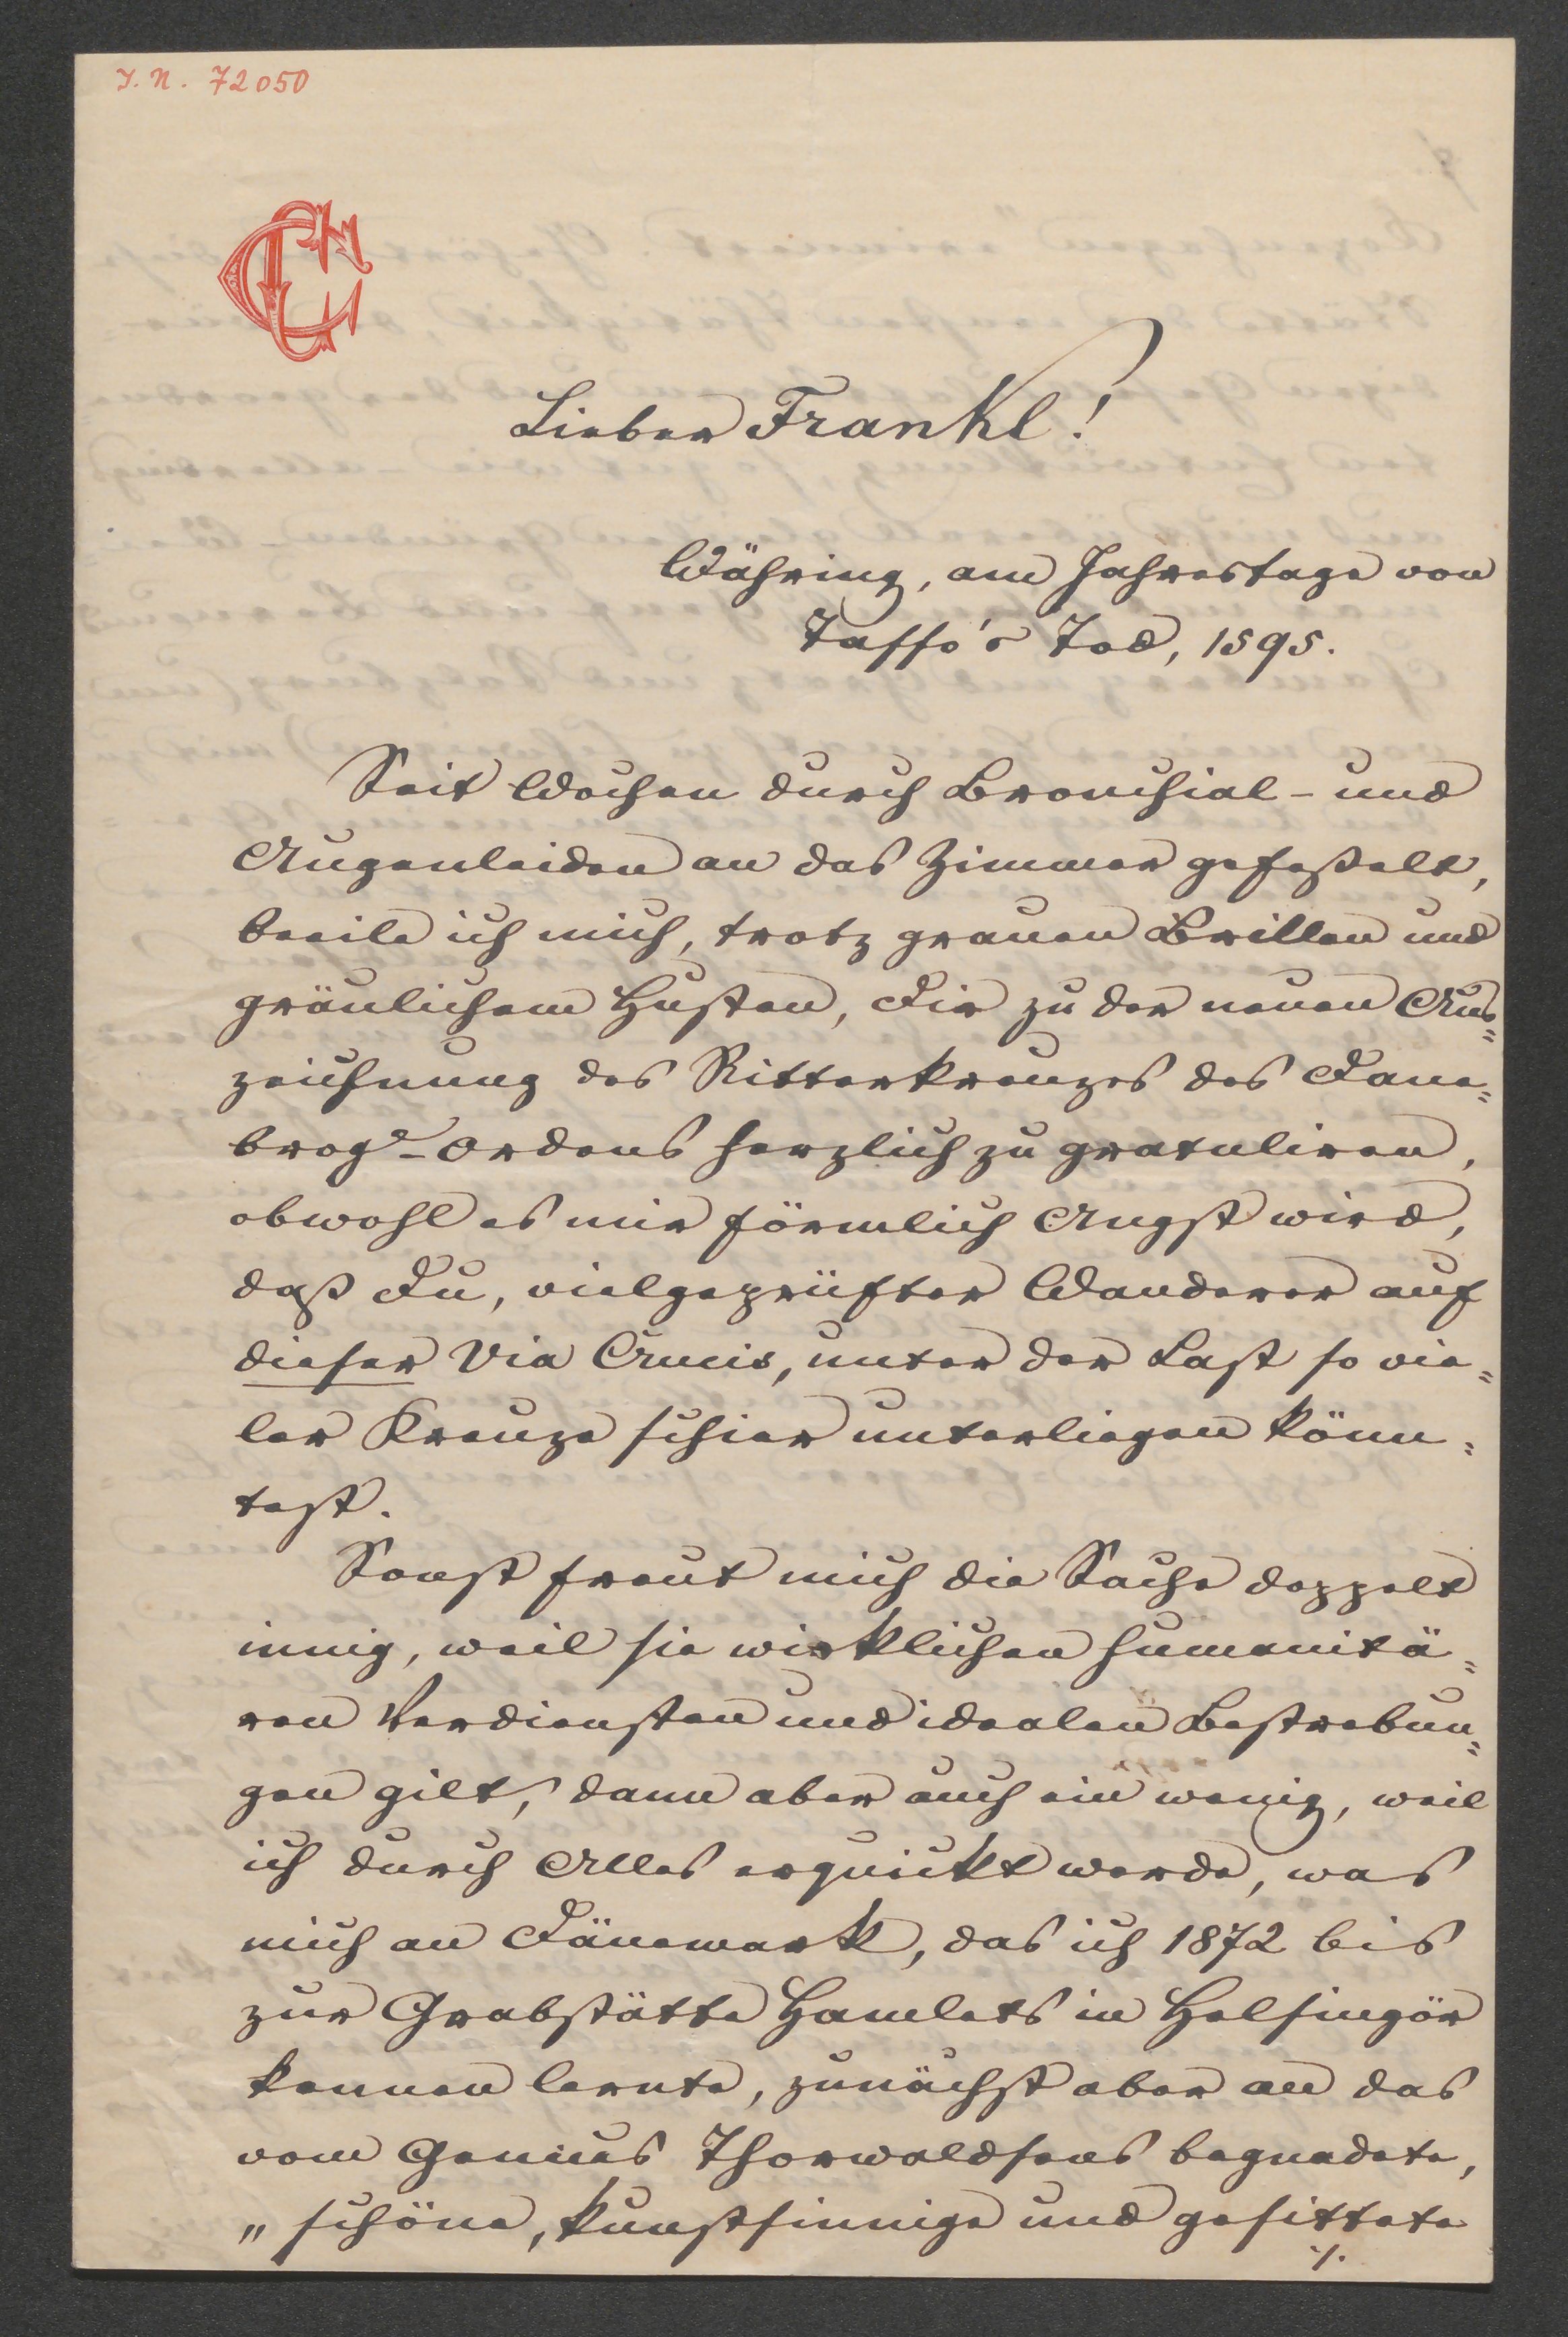 I. N. 72050
Lieber Frankl!
Währing, am Jahrestage von
Tasso's Tod, 1595.
Seit Wochen durch Bronchial- und
Augenleiden an das Zimmer gefeßelt,
beeile ich mich, trotz grauen Brillen und
gräulichem Husten, Dir zu der neuen Aus=
zeichnung des Ritterkreuzes des Dane=
brog-Ordens herzlich zu gratuliren,
obwohl es mir förmlich Angst wird,
daß Du, vielgeprüfter Wanderer auf
dieser Via Crucis, unter der Last so vie=
ler Kreuze schier unterliegen könn=
test.
Sonst freut mich die Sache doppelt
innig, weil sie wirklichen humanitä=
ren Verdiensten und idealen Bestrebun=
gen gilt, dann aber auch ein wenig, weil
ich durch Alles erquickt werde, was
mich an Dänemark, das ich 1872 bis
zur Grabstätte Hamlets in Helsingör
kennen lernte, zunächst aber an das
vom Genius Thorwaldsens begnadete,
„schöne, kunstsinnige und gesittete
./.